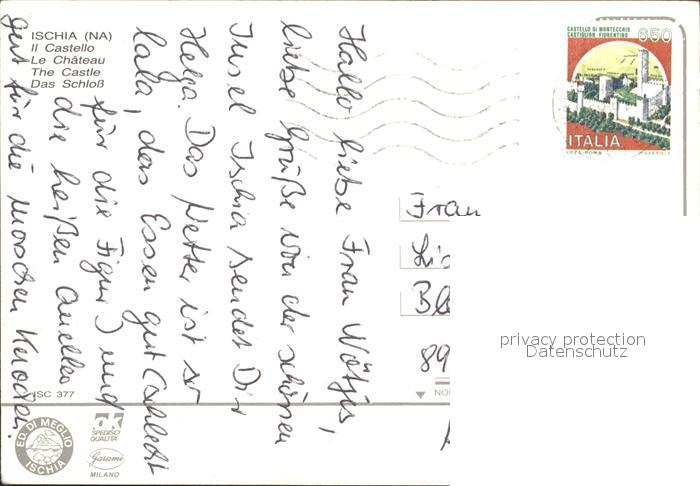 ISCHIA (NA)
Il Castello
Le Château
The Castle
Das Schloß
Hallo liebe Frau
liebe Grüße von der schönen
Insel Ischia sendet Dir
Helga. Das Wetter ist so
lala, das Essen gut (schlecht
für die Figur) und
die heißen Quellen
gut für die morschen Knochen.
CASTELLO DI MONTECCHIO
CASTIGLION FIORENTINO
650
ITALIA
I.P.Z.S. ROMA
Frau
89
privacy protection
Datenschutz
ISC 377
ED. DI MEGLIO
ISCHIA
SPEDISCI
QUALITÀ
Garami
MILANO